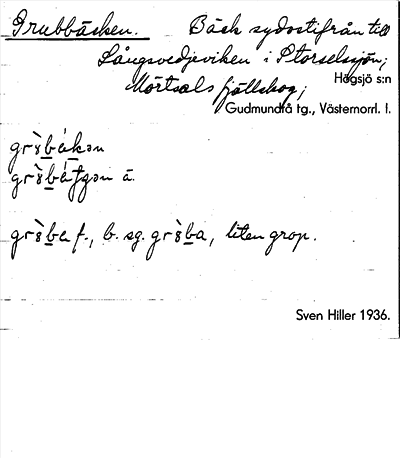 Grubbäcken. Bäck sydostifrån till
Långsvedjeviken i Storselsjön;
Högsjö s:n
Mörtsals fjällskog;
Gudmundrå tg., Västernorrl. l.
grɞ̀bákən
grɞ̀bátʃən ä.
grɞ̀ba f., b. sg. grɞ̀ba, liten grop.
Sven Hiller 1936.